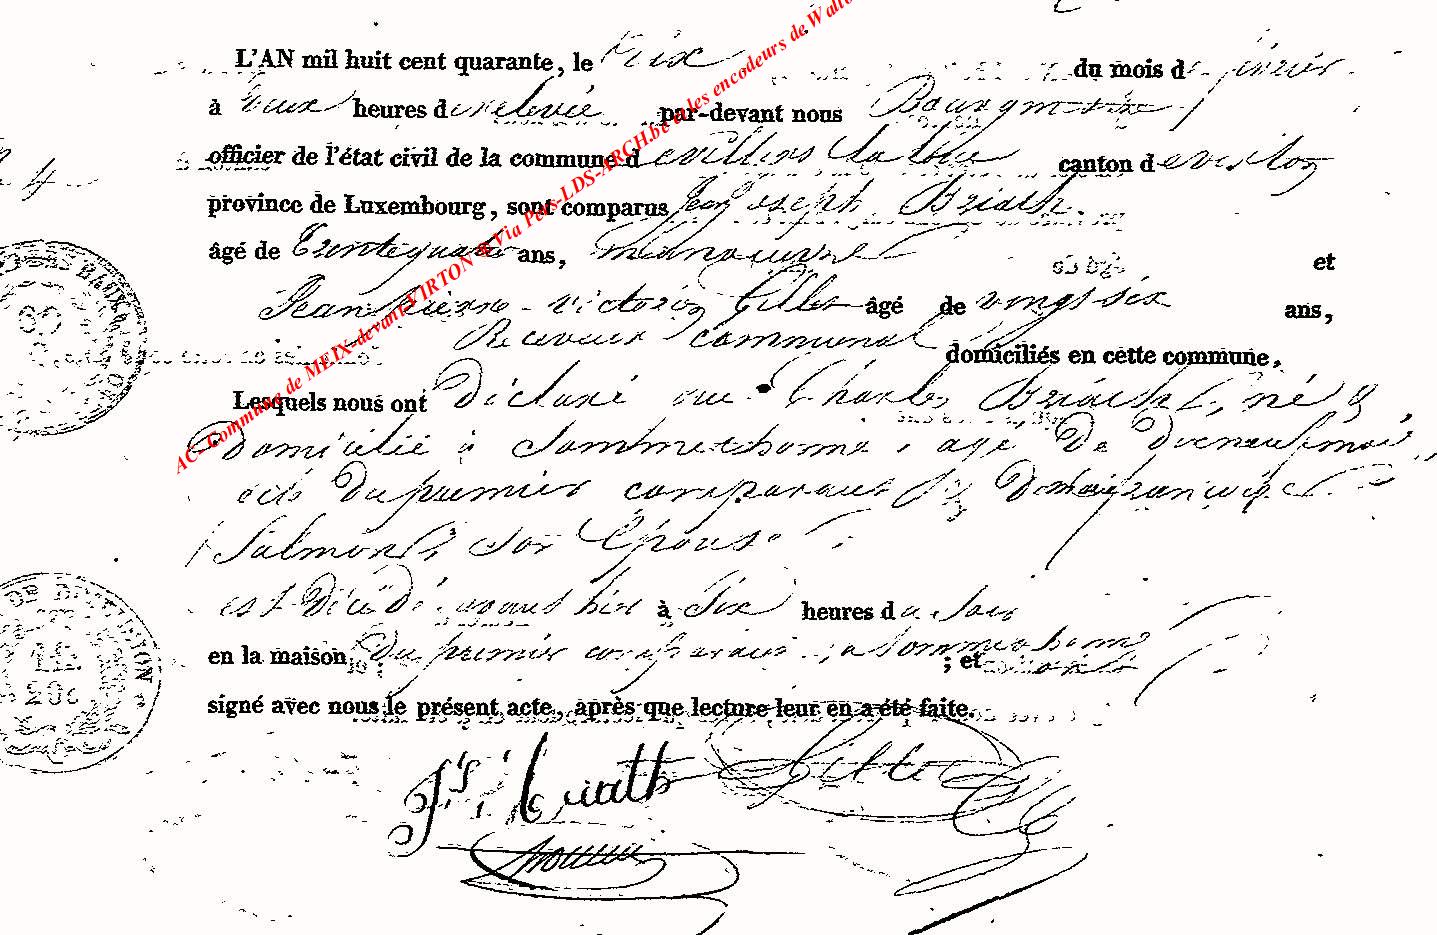 L'AN mil huit cent quarante, le six du mois de février
à deux heures de relevée par-devant nous Bourgmestre
officier de l'état civil de la commune de Villers la loue canton de virton
4
province de Luxembourg, sont comparus Jean Joseph Briath
âgé de trente quatre ans, manouvre et
Jean pierre victorin Gilles âgé de vingt six ans,
Receveur communal domiciliés en cette commune,
Lesquels nous ont déclaré que Charles Briath, né &
domicilié à Sommethonne, age de dix neuf mois,
fils du premier comparant & de françoise
Salmon son Epouse
est décédé avant hier à six heures du soir
en la maison du premier comparant, a Sommethonne ; et ont
signé avec nous le présent acte, après que lecture leur en a été faite.
Js. Briath Gilles
AC. Commune de MEIX-devant-VIRTON & Via Pers-LDS-ARCH.be & les encodeurs de